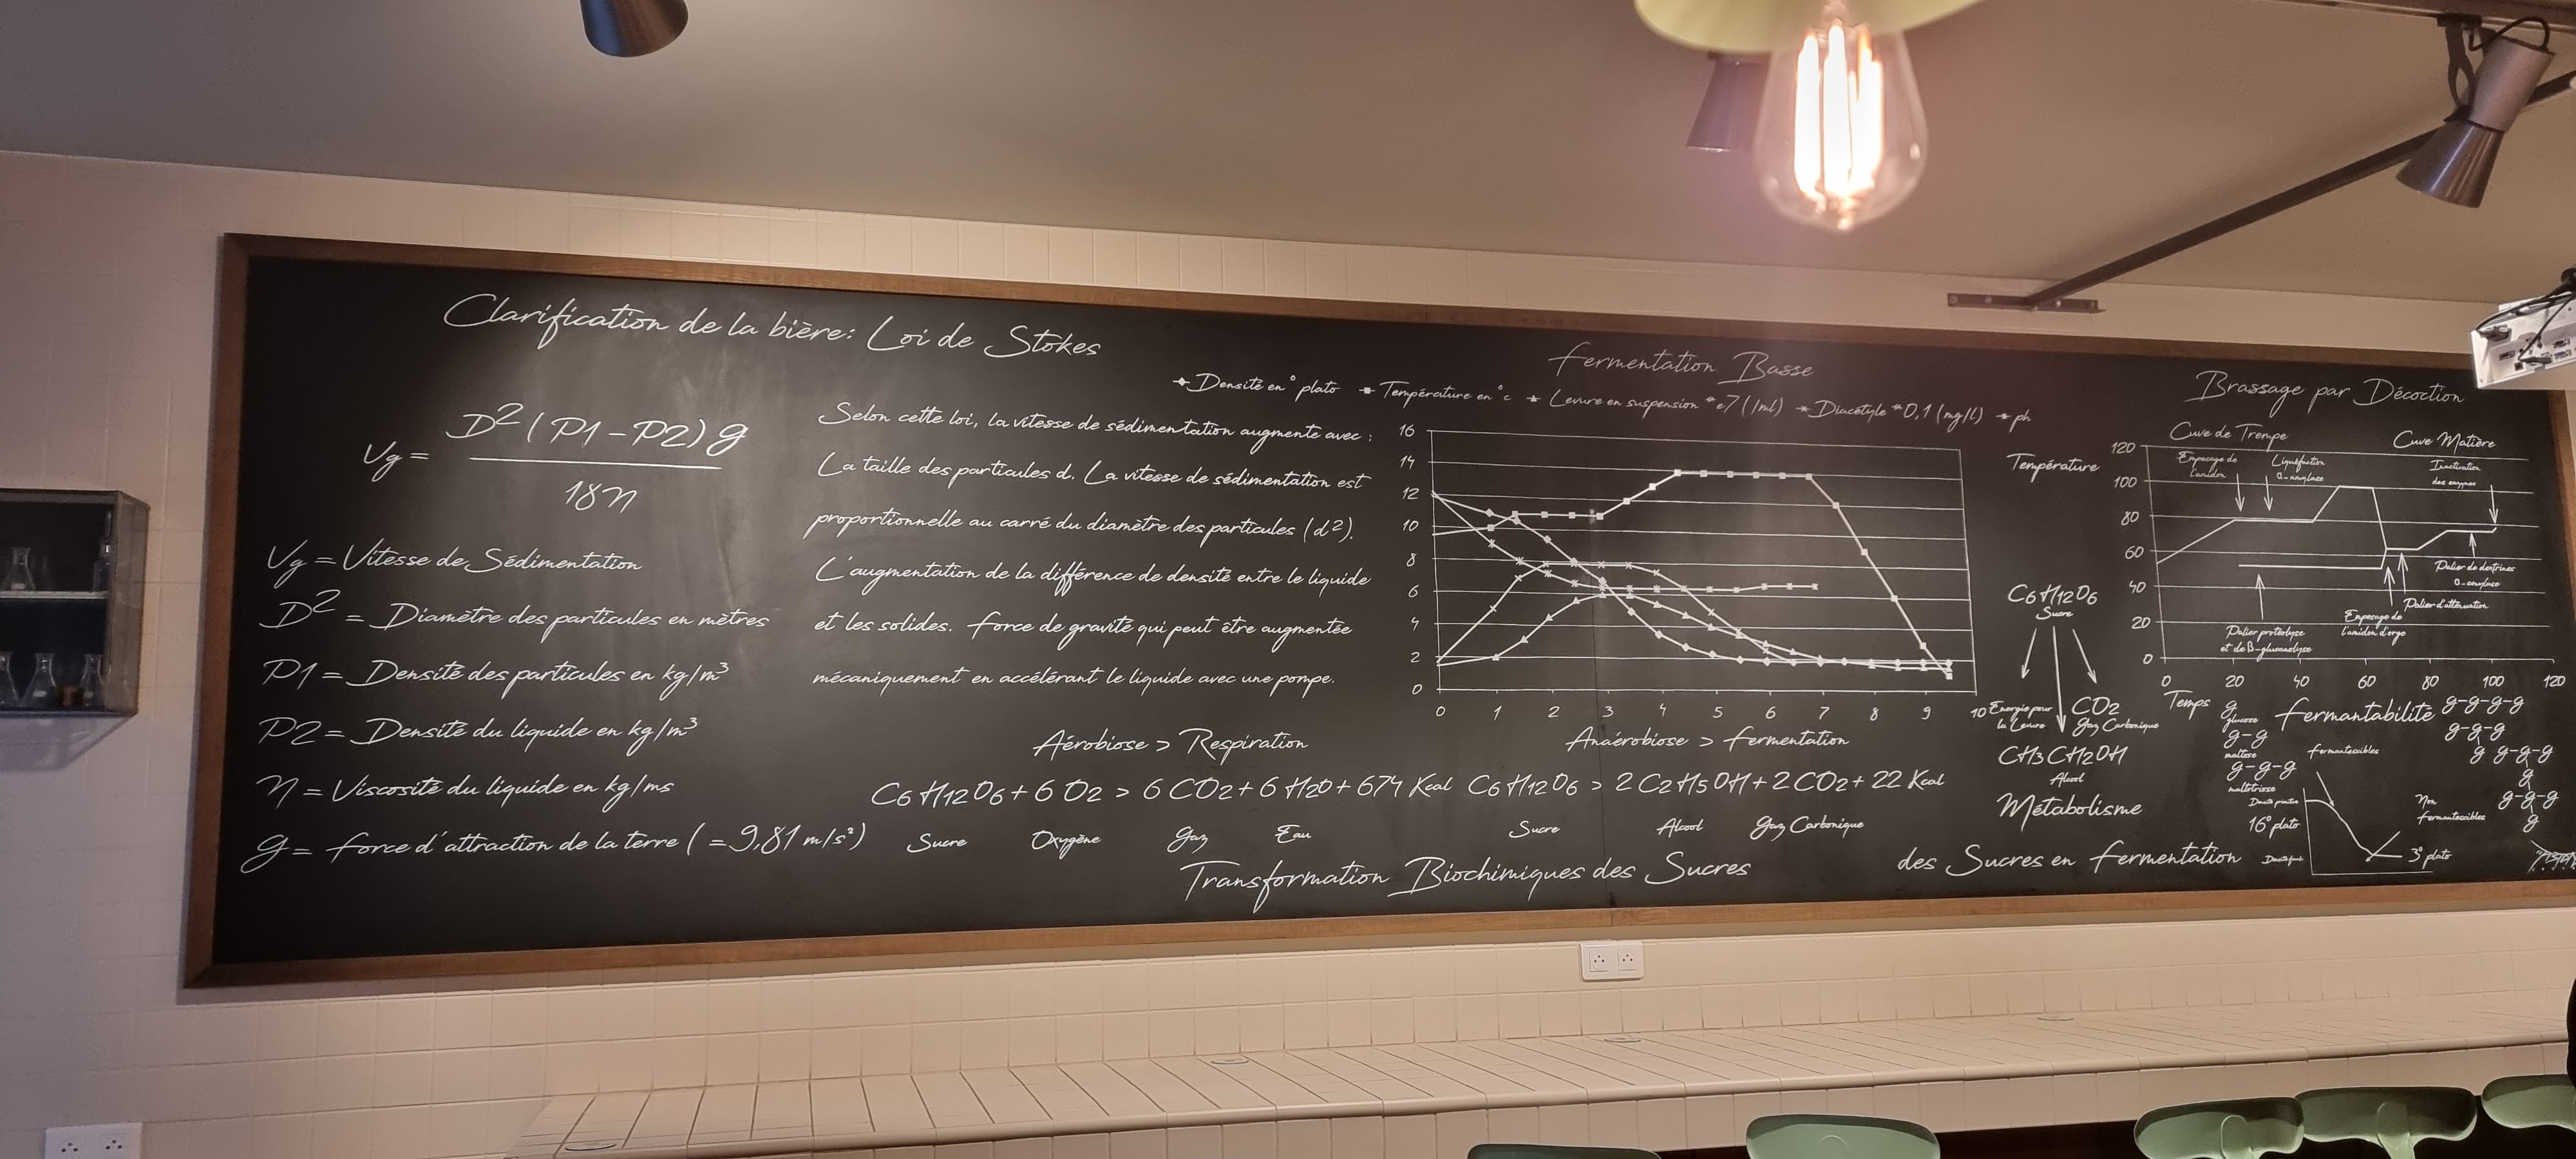 Clarification de la bière: Loi de Stokes
Vg =
D² (P1 - P2) g
18η
Vg = Vitesse de Sédimentation
D² = Diamètre des particules en mètres
P1 = Densité des particules en kg/m³
P2 = Densité du liquide en kg/m³
η = Viscosité du liquide en kg/ms
g = force d'attraction de la terre ( = 9,81 m/s²)
Selon cette loi, la vitesse de sédimentation augmente avec :
La taille des particules d. La vitesse de sédimentation est
proportionnelle au carré du diamètre des particules (d2).
L'augmentation de la différence de densité entre le liquide
et les solides. force de gravité qui peut être augmentée
mécaniquement en accélérant le liquide avec une pompe.
Fermentation Basse
Densité en ° plato Température en °c Levure en suspension *e7 (/ml) Diacétyle *0,1 (mg/l) ph
16
14
12
10
8
6
4
2
0
0 1 2 3 4 5 6 7 8 9 10
Aérobiose > Respiration
C6 H12 O6 + 6 O2 > 6 CO2 + 6 H2O + 674 Kcal
Sucre Oxygène Gaz Eau
Anaérobiose > fermentation
C6 H12 O6 > 2 C2 H5 OH + 2 CO2 + 22 Kcal
Sucre Alcool Gaz Carbonique
Transformation Biochimiques des Sucres
C6 H12 O6
Sucre
Energie pour
la Levure
CO2
Gaz Carbonique
CH3 CH2 OH
Alcool
Métabolisme
des Sucres en fermentation
Brassage par Décoction
Cuve de Trempe
Cuve Matière
Température
120
100
80
60
40
20
0
Empesage de
l'amidon
Liquéfaction
Inactivation
des enzymes
Palier de dextrines
Palier d'atténuation
Empesage de
l'amidon d'orge
Palier protéolyse
et de B-glucanolyse
0 20 40 60 80 100 120
Temps
fermantabilité
g
glucose
g-g
maltose
g-g-g
maltotriose
g-g-g-g
g-g-g
g g-g-g
g
g-g-g
g
fermentescibles
Non
fermentescibles
16° plato
3° plato